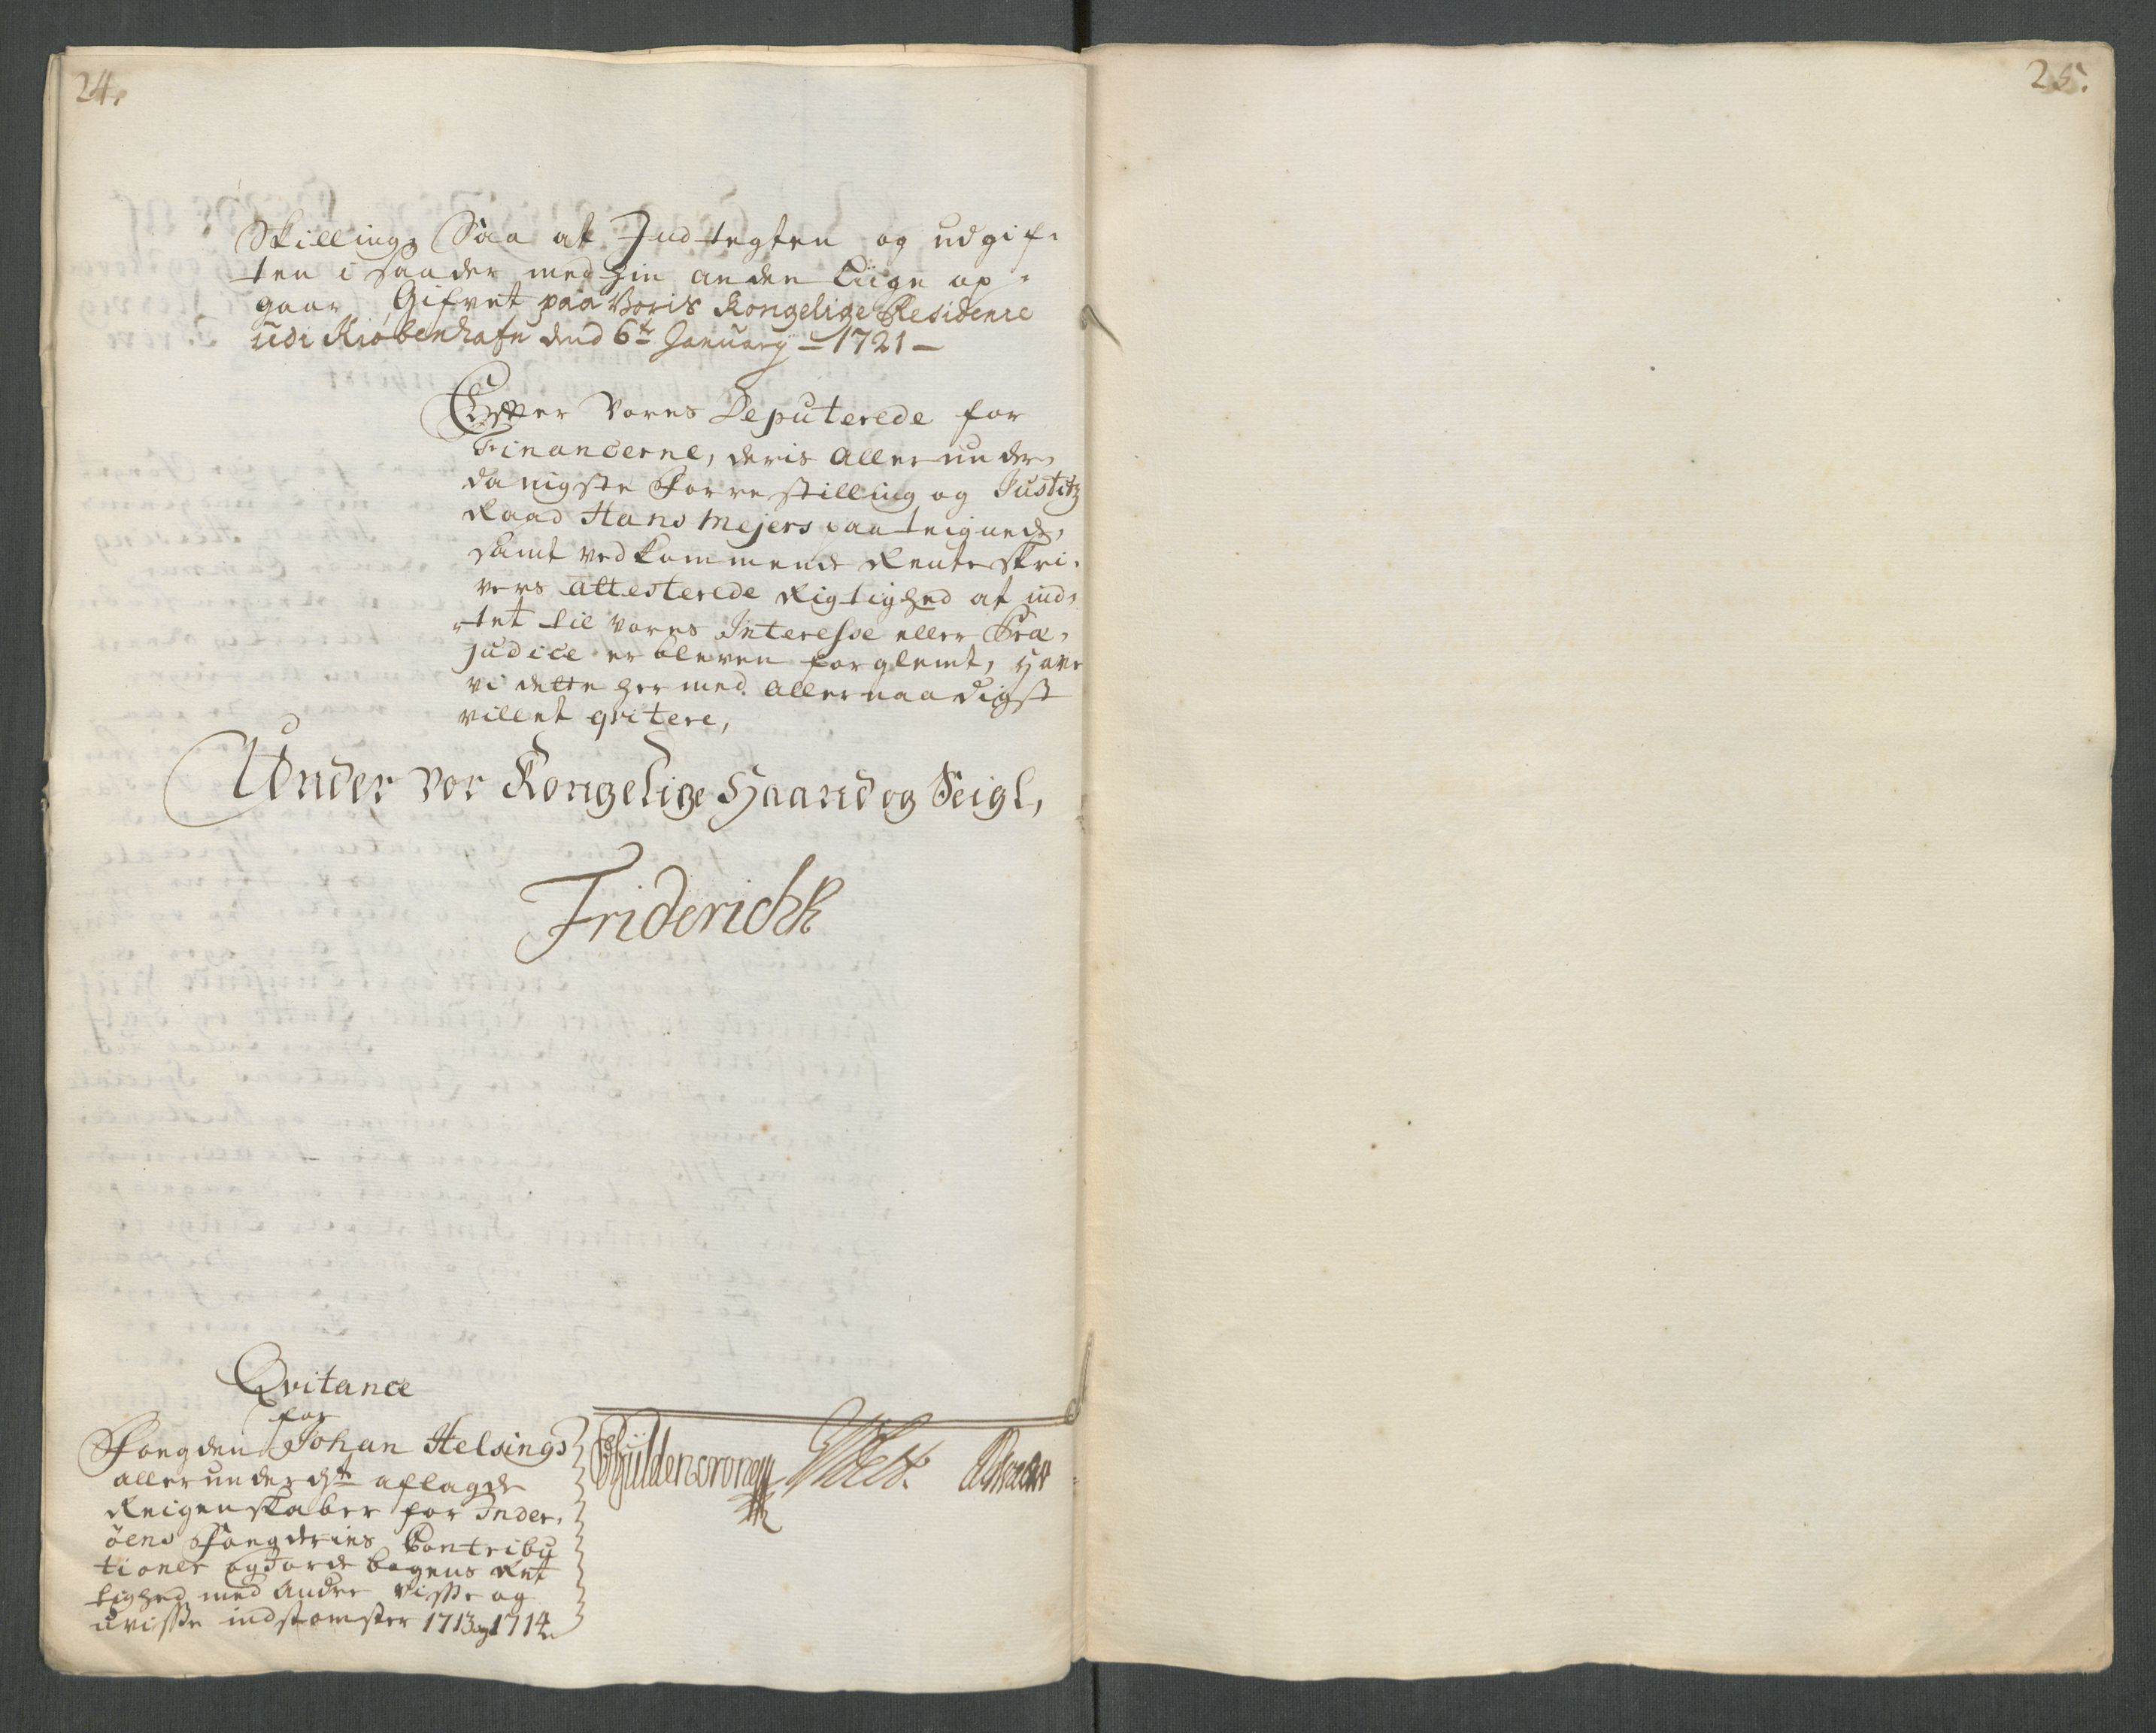 24.
25.
Skilling, Saa at Indtegten og udgif-
ten i saa der med hin anden Liige op-
gaar, Gifvet paa Voris Kongelige Residence
udi Kiøbenhafn dend 6te January – 1721 –
Efter Vores Deputerede for
Financerne, deris Allerunder-
danigste Forrestilling og Justitz
Raad Hans Mejers paateignede,
samt vedkommende Renteskri-
vers attesterede Rigtighed at ind-
tet til Vores Interesse eller Præ-
judice er bleven forglemt, have
vi dette hermed Allernaadigst
villet qvitere,
Under Vor Kongelige Haand og Seigl,
Friderich R
Qvitance
for
Fogden Johan Helsings
allerunderdste aflagde
Reigenskaber for Inder-
öens Fogderies Contribu
tioner og Jordebogens Ret
tighed med Andre Visse og
uvisse indkomster 1713 og 1714
Güldencrone